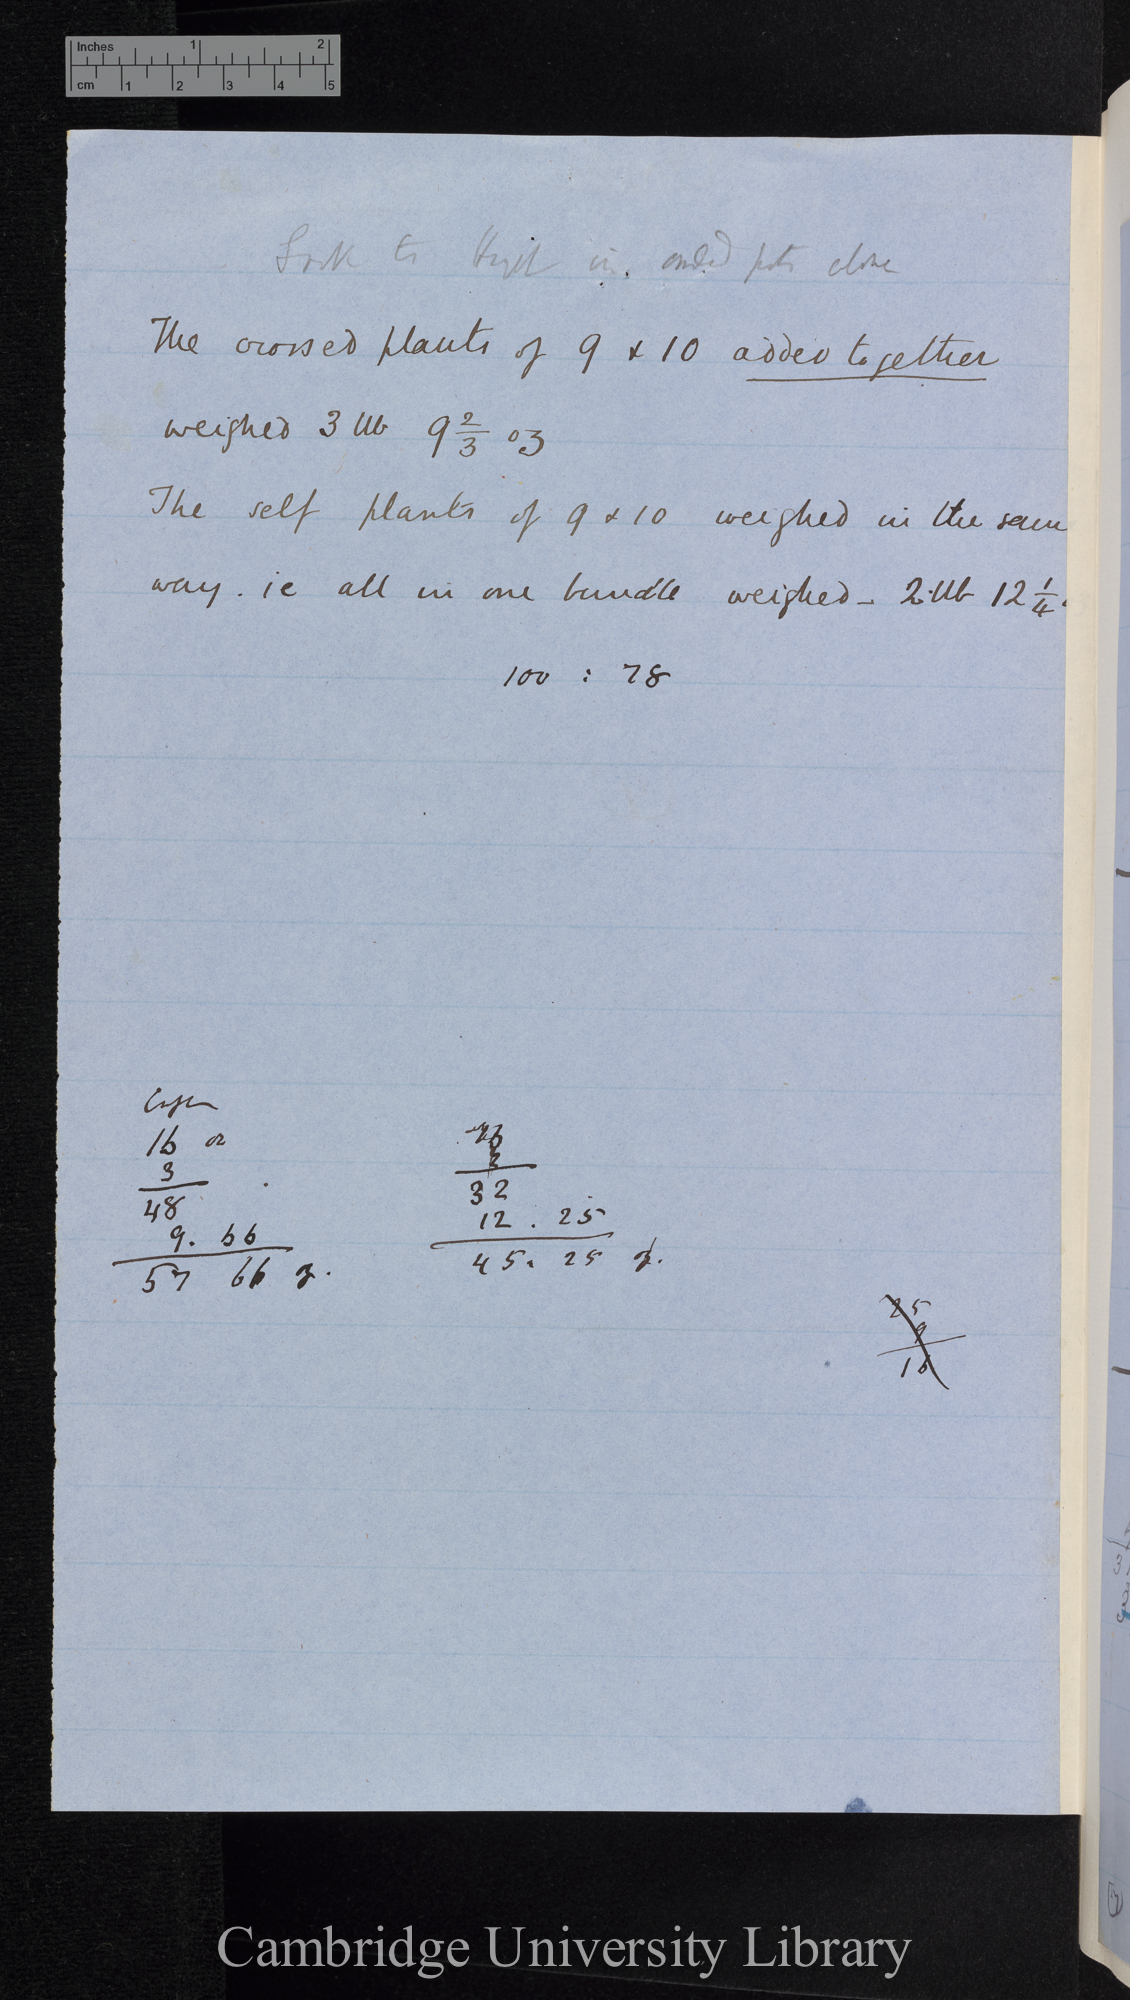 Inches 1 2
cm 1 2 3 4 5
Look to in pots close
The crossed plants of 9 & 10 added together
weighed 3 lb 9 2/3 oz
The self plants of 9 & 10 weighed in the same
way. ie all in one bundle weighed - 2 lb 12 1/4
100 : 78
16 oz
3
48
9. 66
57 66 oz.
16
2
32
12 . 25
45. 25 oz.
25
9
16
Cambridge University Library